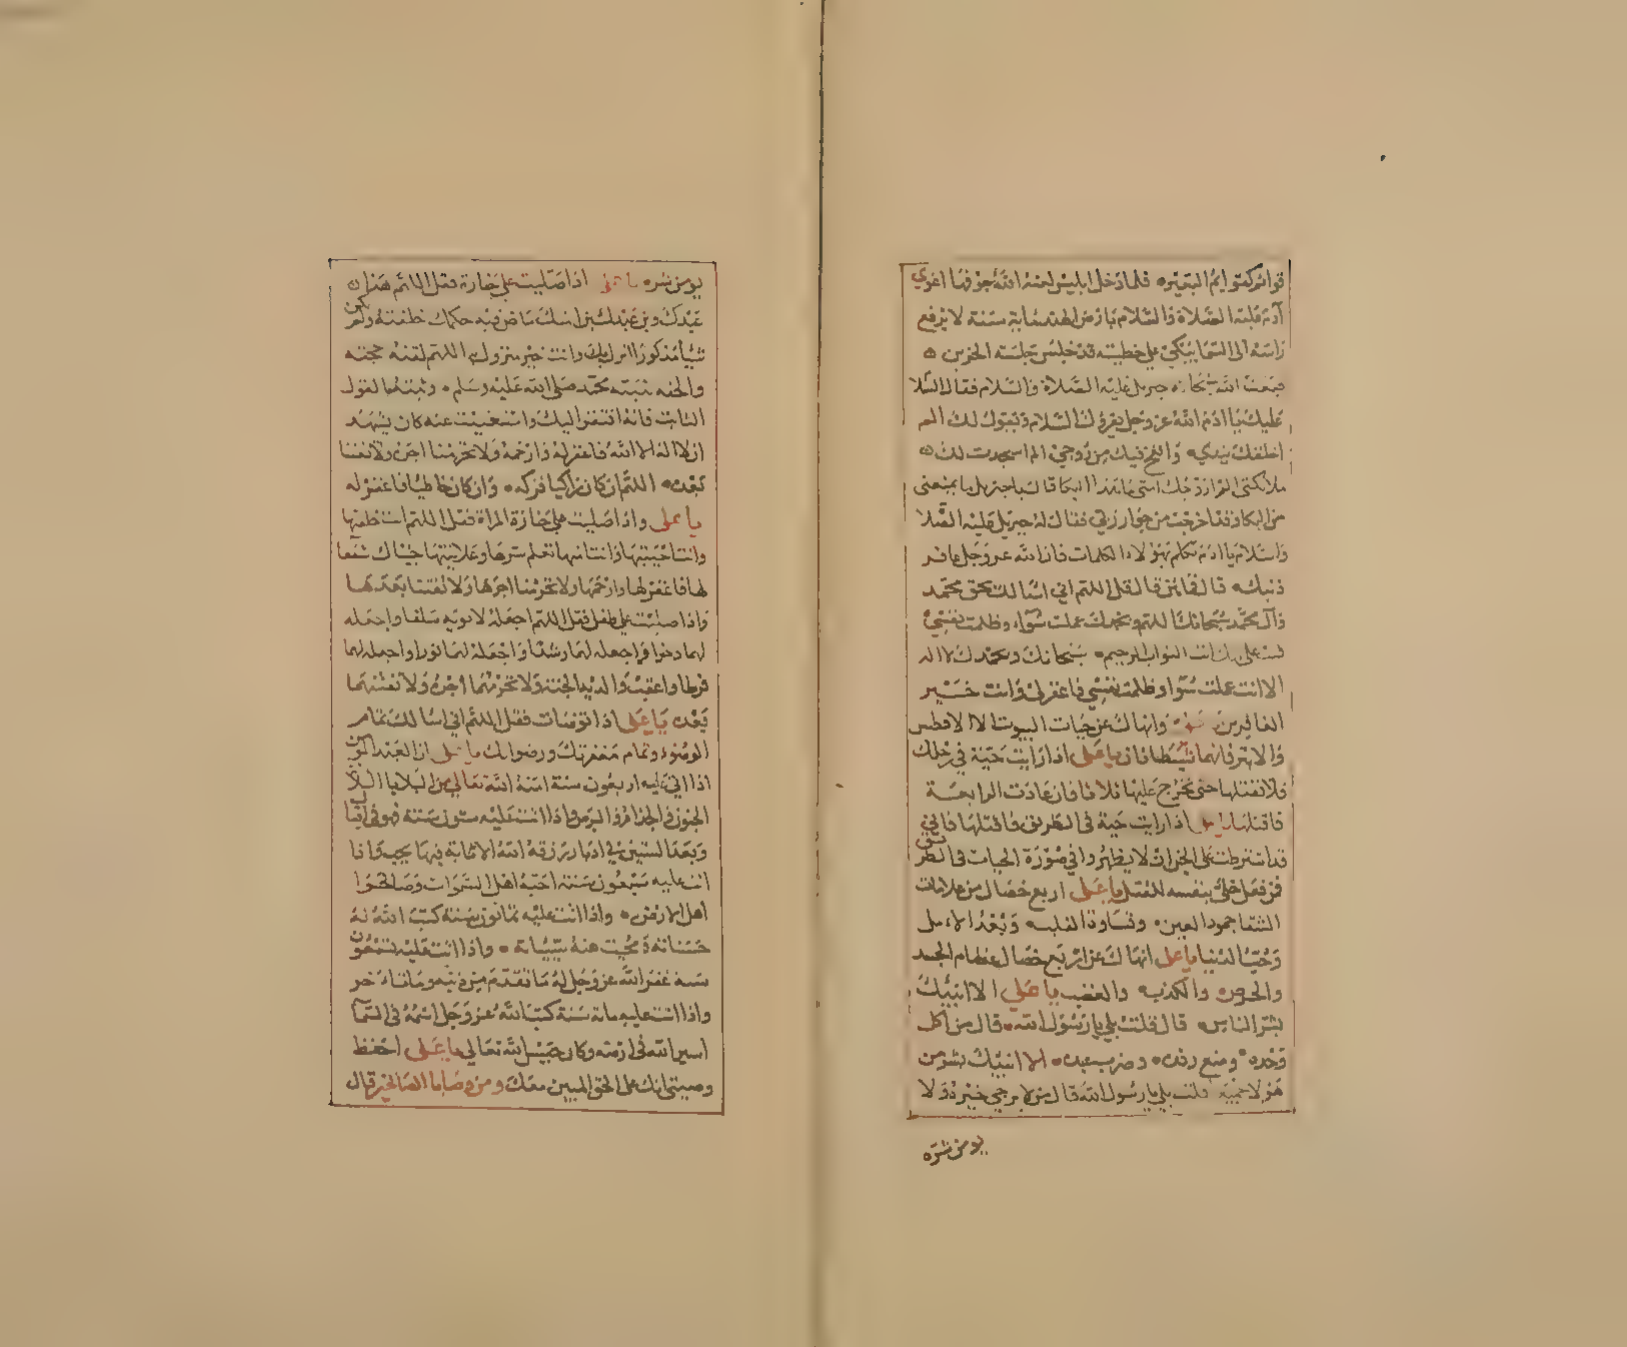 قوائم كقوائم البعير فلما دخل ابليس لعنه الله جوفها اغوي
آدم عليه الصلاة والسلام بارض الهند مايه سنة لا يرفع
راسه الى السما يبكي على خطيته قد جلس جلسة الحزين
فبعث الله سبحانه جبريل عليه الصلاة والسلام فقال السلا
عليك يا ادم الله عز وجل يقرؤك السلام ويقول لك الم
اخلقك بيدي والنفخ فيك من روحي الم اسجدت لك
ملائكتي الم ازوجك امتي ما هذا البكا قال يا جبريل ما يمنعني
من البكا وقد اخرجت من جوار ربي فقال له جبريل عليه الصلا
والسلام يا ادم تكلم بهؤلاء الكلمات فان الله عز وجل غافر
ذنبك قال فما هن قال قل اللهم اني اسالك بحق محمد
وآل محمد سبحانك اللهم وبحمدك عملت سوآء وظلمت نفسي
فتب علي انك انت التواب الرحيم سبحانك وبحمدك لا اله
الا انت عملت سوا وظلمت نفسي فاغفر لي وانت خير
الغافرين وانهاك عن حيات البيوت الا الافطس
والابتر فانهما شيطانان يا علي اذا رايت حية في رحلك
فلا تقتلها حتى تخرج عليها ثلاثا فان عادت الرابعة
فاقتلها يا علي اذا رايت حية في الطريق فاقتلها فاني
قد اشترطت على الجن ان لا يظهروا في صورة الحيات في الطر
يق
فمن فعل خلى بنفسه للقتل يا علي اربع خصال من علامات
الشقا جمود العين وقساوة القلب وبعد الامل
وحب الدنيا يا علي انهاك عن اربع خصال عظام الحسد
والحرص والكذب والغضب يا علي الا انبيك
بشر الناس قال قلت بلي يا رسول الله قال من اكل
وحده ومنع رفده وضرب عبده الا انبيك بشر من
هؤلاء قلت بلي يا رسول الله قال من لا يرجي خيره ولا
يومن شره
يومن شره يا علي اذا صليت علي جنازة فقل اللهم هذا
عبدك وبن عبدك بن امتك ماض فيه حكمك خلقته ولم
يكن
شيأ مذكورا انزل بك وانت خير منزول به اللهم لقنه حجته
والحقه بنبيه محمد صلى الله عليه وسلم وثبته بالقول
الثابت فانه افتقر اليك واستغنيت عنه كان يشهد
ان لا اله الا الله فاغفر له وارحمه ولا تحرمنا اجره ولا تفتنا
بعده اللهم ان كان زاكيا فزكه وان كان خاطيا فاغفر له
يا علي واذا صليت علي جنازة المراة فقل اللهم انت خلقتها
وانت احييتها وانت امتها تعلم سرها وعلانيتها جيناك شفعا
لها فاغفر لها وارحمها ولا تحرمنا اجرها ولا تفتنا بعدها
واذا صليت علي طفل فقل اللهم اجعله لابويه سلفا واجعله
لهما ذخرا واجعله لهما رشدا واجعله لهما نورا واجعله لهما
فرطا واعقب والديه الجنة ولا تحرمهما اجره ولا تفتنهما
بعده يا علي اذا توضات فقل اللهم اني اسالك تمام
الوضوء وتمام مغفرتك ورضوانك يا علي ان العبد المومن
اذا اتي عليه اربعون سنة امنه الله تعالي من البلايا الثلاث
الجنون والجذام والبرص واذا اتت عليه ستون سنة فهو في اقبال
وبعد الستين في ادبار رزقه الله الانابة فيما يحب واذا
اتت عليه سبعون سنة احبه اهل السموات وصالحوا
اهل الارض واذا اتت عليه ثمانون سنة كتب الله له
حسناته ومحيت عنه سيياته واذا اتت عليه تسعون
سنة غفر الله عز وجل له ما تقدم من ذنبه وما تاخر
واذا اتت عليه مائة سنة كتب الله عز وجل اسمه في السمآ
اسير الله في ارضه وكان حبيس الله تعالي يا علي احفظ
وصيتي انك على الحق المبين معك ومن وصايا الصالحين قال